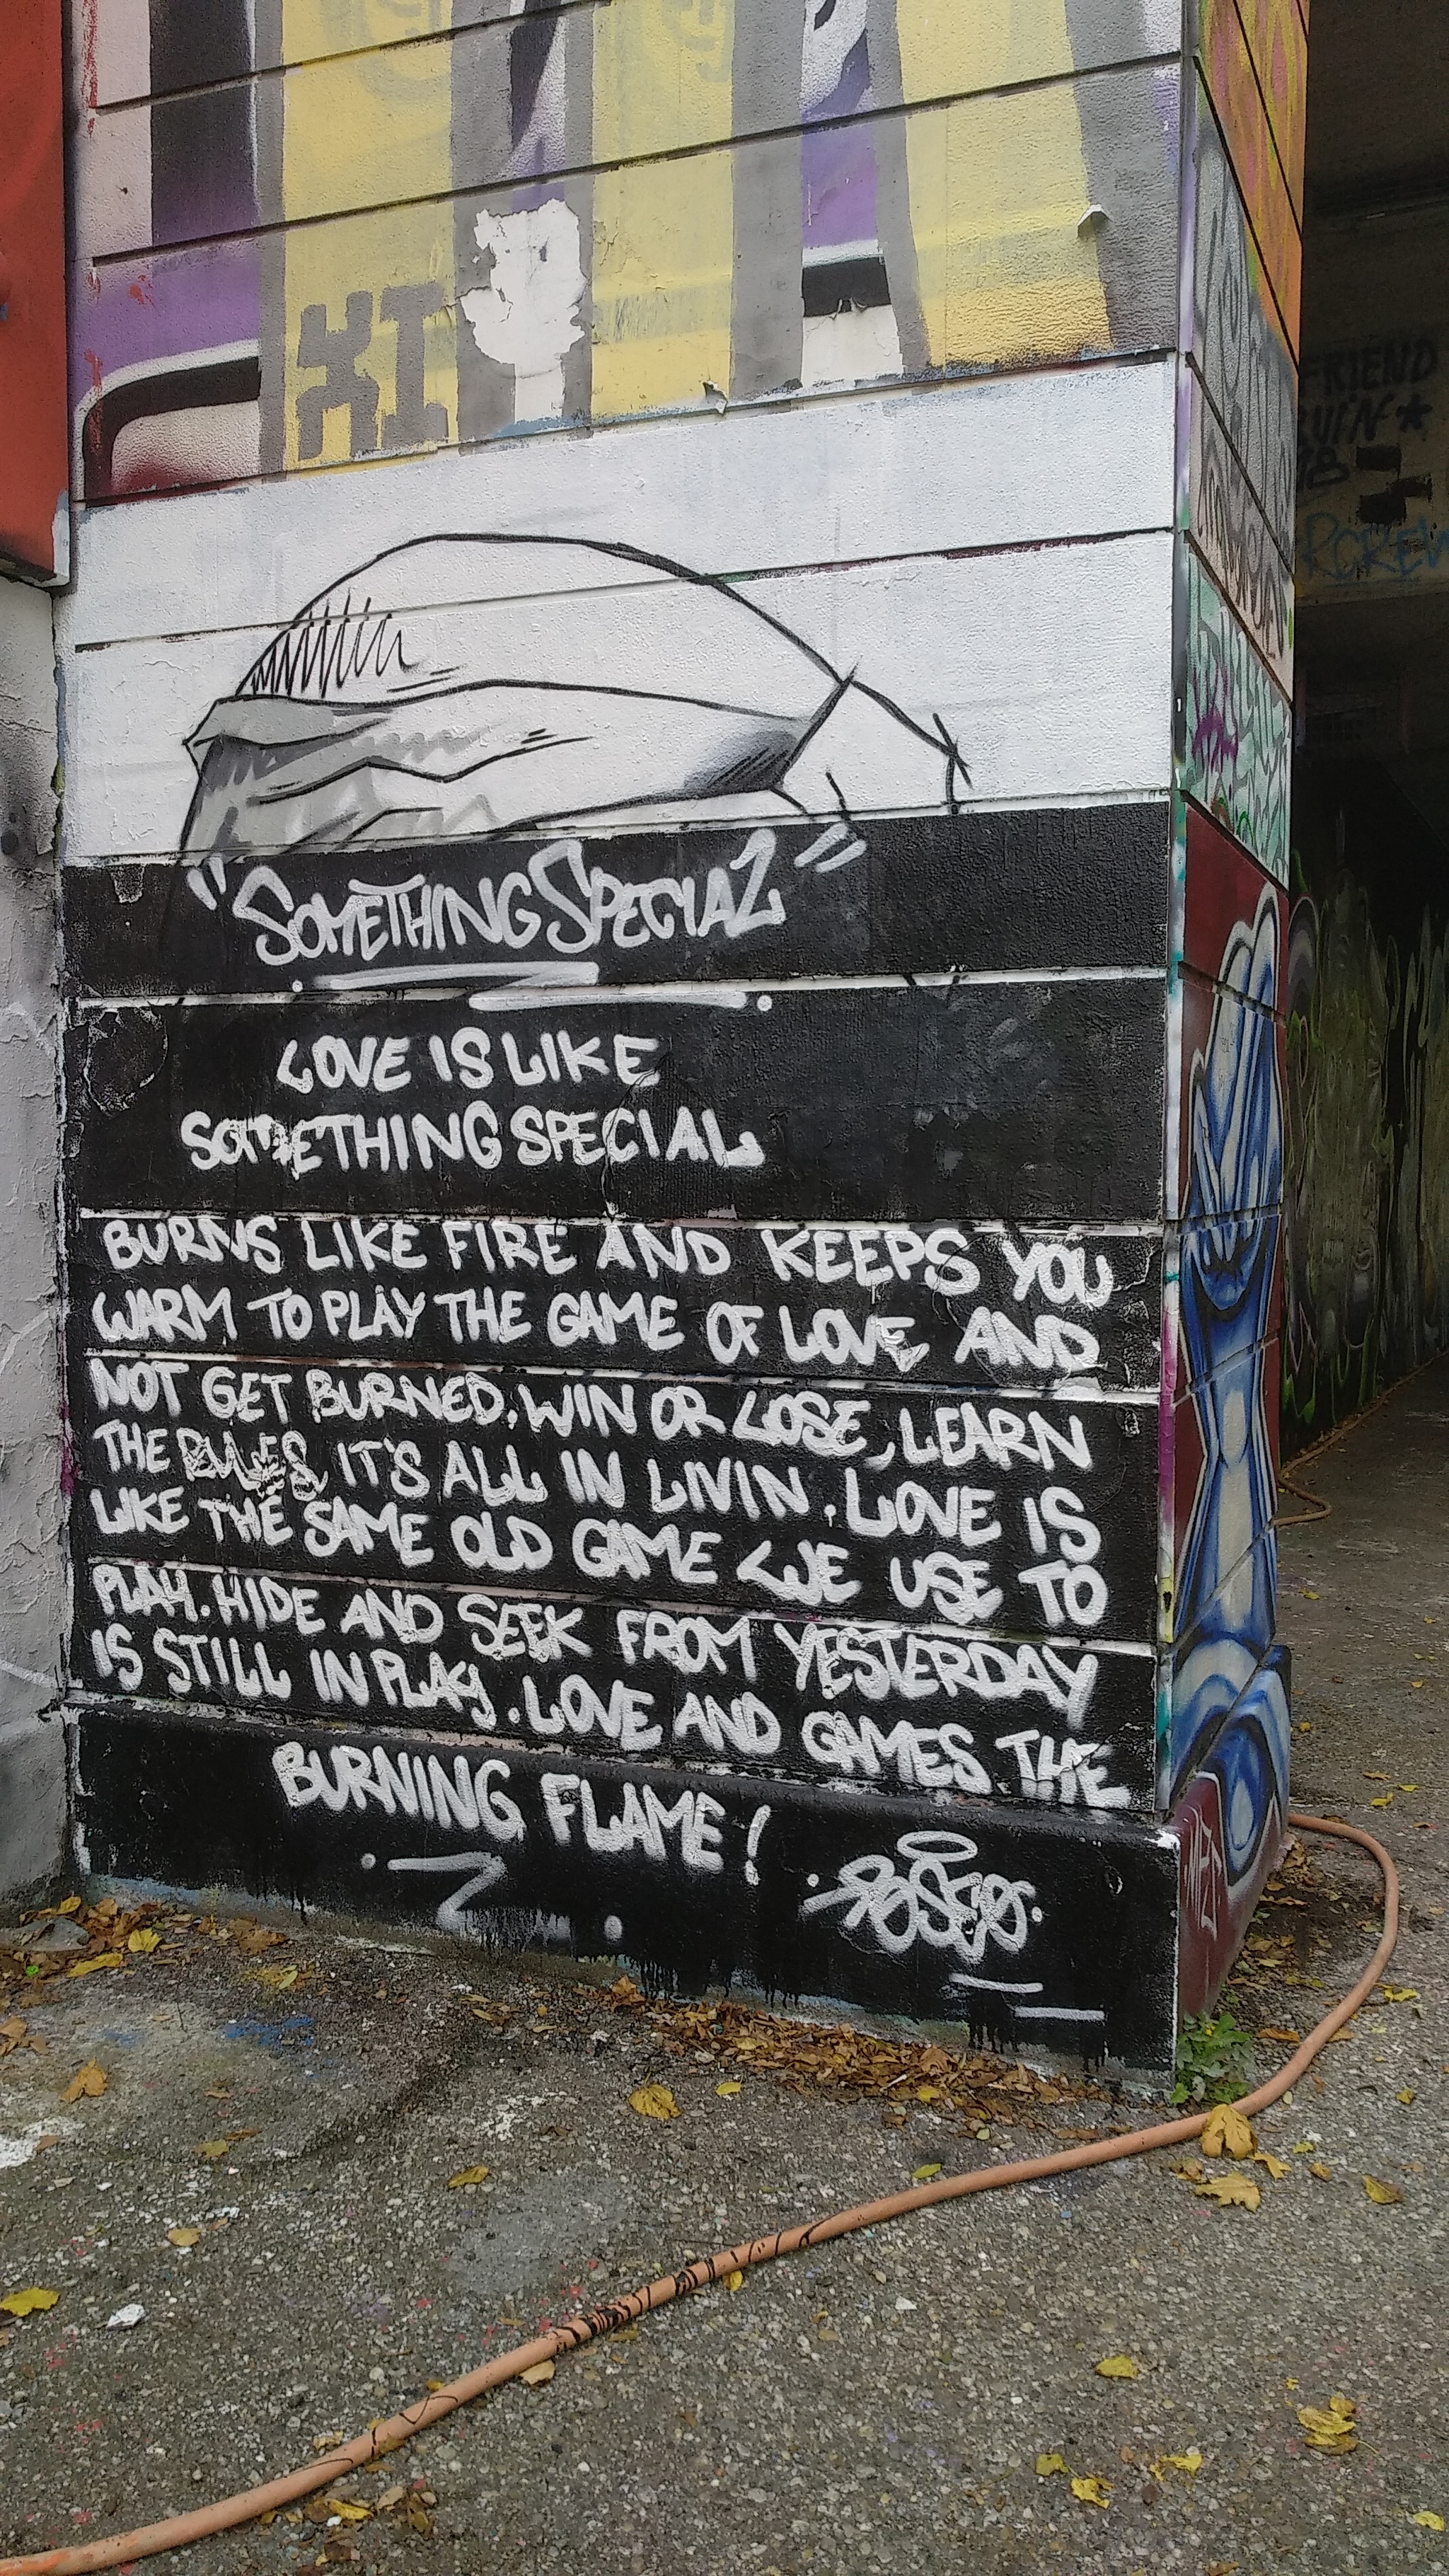 XI
"SOMETHING SPECIAL"
LOVE IS LIKE
SOMETHING SPECIAL
BURNS LIKE FIRE AND KEEPS YOU
WARM TO PLAY THE GAME OF LOVE AND
NOT GET BURNED. WIN OR LOSE, LEARN
THE RULES, IT'S ALL IN LIVIN. LOVE IS
LIKE THE SAME OLD GAME WE USE TO
PLAY. HIDE AND SEEK FROM YESTERDAY
IS STILL IN PLAY. LOVE AND GAMES THE
BURNING FLAME!
FRIEND